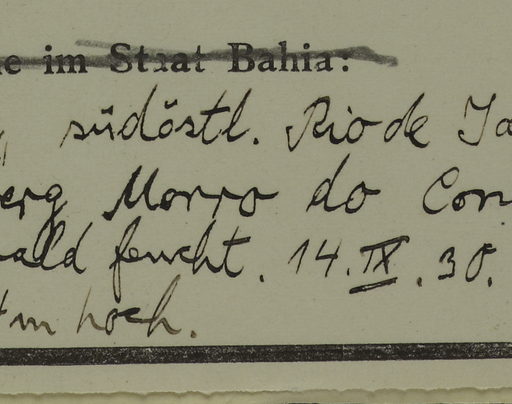 e im Staat Bahia:
südöstl. Rio de Ja
erg Morro do Cor
ald feucht. 14. IX. 30.
m hoch.